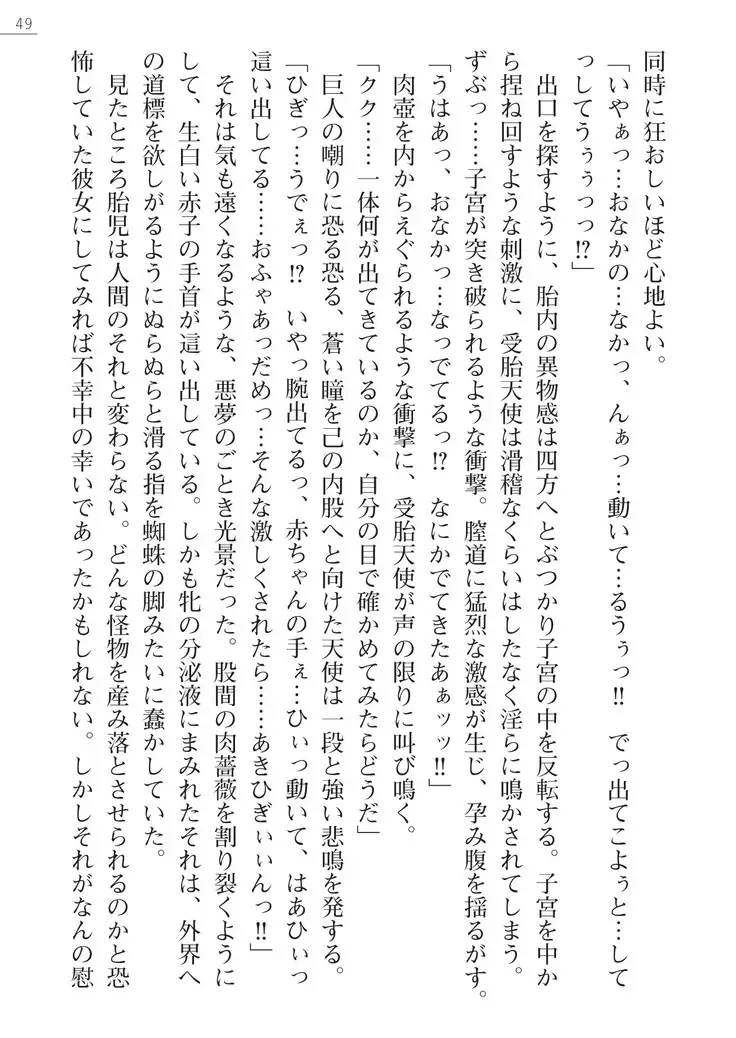 49
同時に狂おしいほど心地よい。
「いやぁっ…おなかの…なかっ、んぁっ…動いて…るうぅっ‼　でっ出てこよぅと…して
っしてうぅぅっっ⁉」
　出口を探すように、胎内の異物感は四方へとぶつかり子宮の中を反転する。子宮を中か
ら捏ね回すような刺激に、受胎天使は滑稽なくらいはしたなく淫らに鳴かされてしまう。
ずぶっ……子宮が突き破られるような衝撃。膣道に猛烈な激感が生じ、孕み腹を揺るがす。
「うはあっ、おなかっ…なっでてるっ⁉　なにかでてきたあぁッッ‼」
　肉壺を内からえぐられるような衝撃に、受胎天使が声の限りに叫び鳴く。
「クク……一体何が出てきているのか、自分の目で確かめてみたらどうだ」
　巨人の嘲りに恐る恐る、蒼い瞳を己の内股へと向けた天使は一段と強い悲鳴を発する。
「ひぎっ…うでぇっ⁉　いやっ腕出てるっ、赤ちゃんの手ぇ…ひぃっ動いて、はあひぃっ
這い出してる……おふゃあっだめっ…そんな激しくされたら……あきひぎぃぃんっ‼」
　それは気も遠くなるような、悪夢のごとき光景だった。股間の肉薔薇を割り裂くように
して、生白い赤子の手首が這い出している。しかも牝の分泌液にまみれたそれは、外界へ
の道標を欲しがるようにぬらぬらと滑る指を蜘蛛の脚みたいに蠢かしていた。
　見たところ胎児は人間のそれと変わらない。どんな怪物を産み落とさせられるのかと恐
怖していた彼女にしてみれば不幸中の幸いであったかもしれない。しかしそれがなんの慰